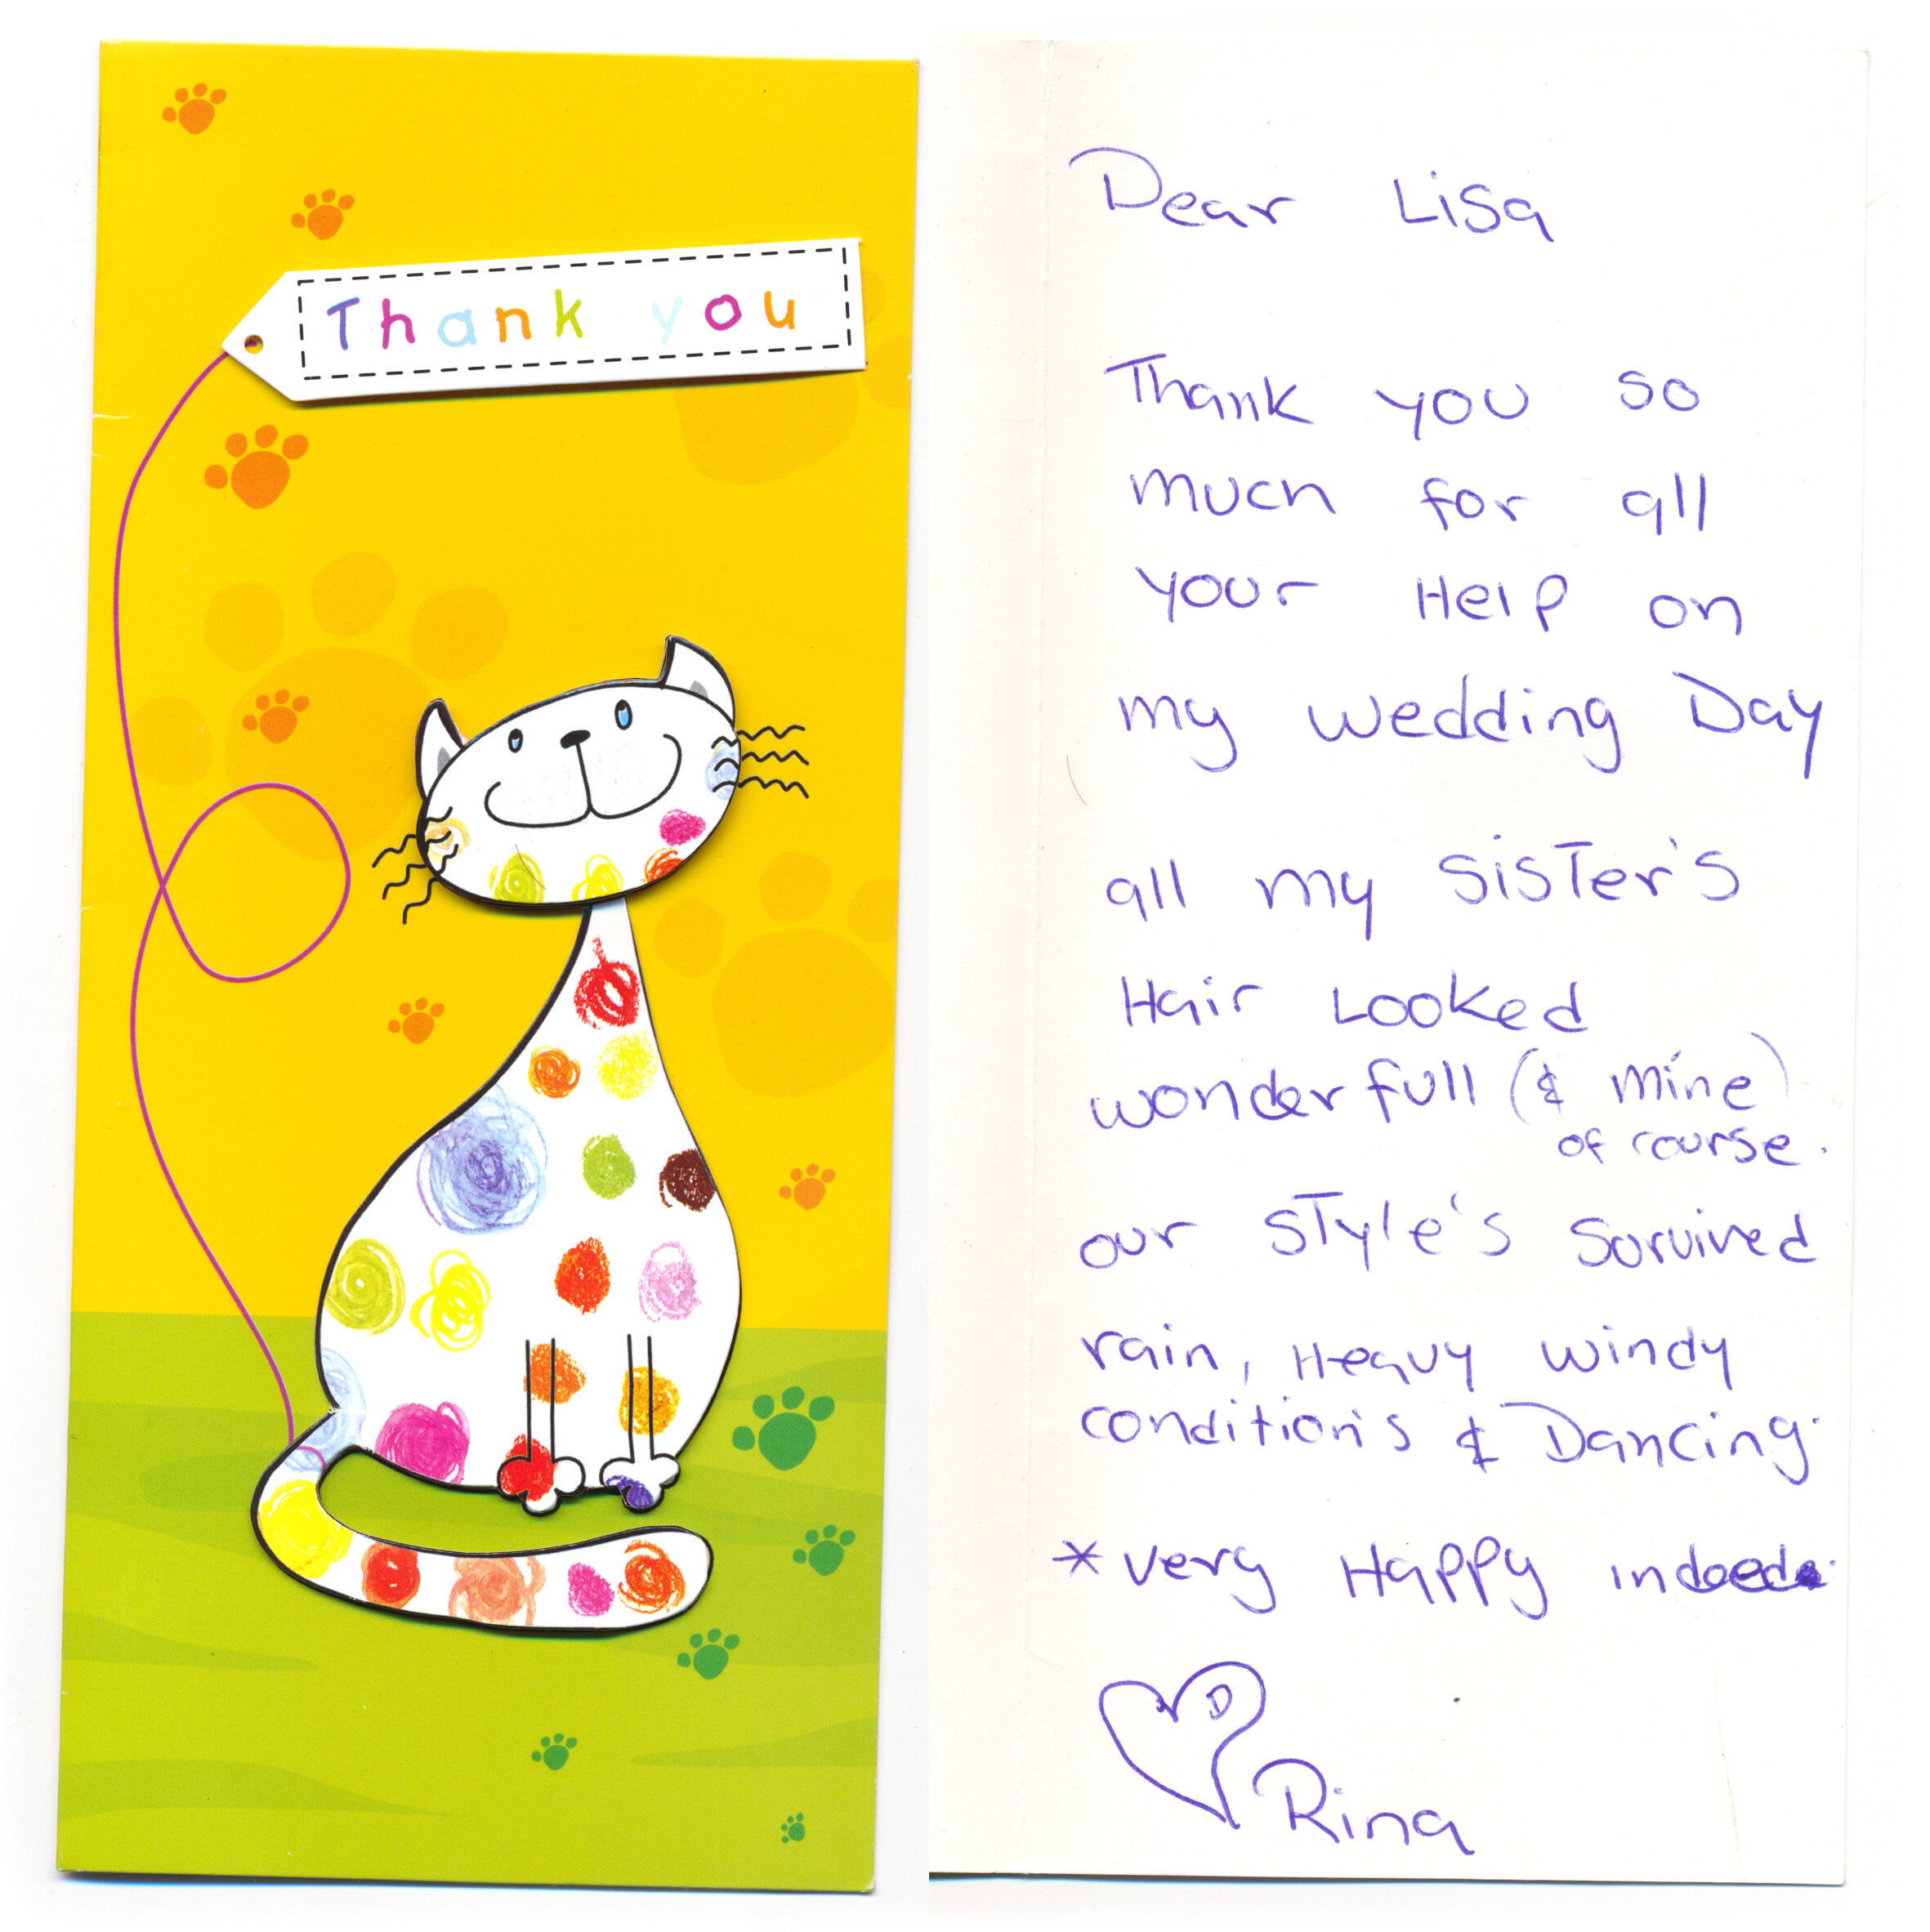 Thank you
Dear Lisa
Thank you so
much for all
your Help on
my wedding Day
all my sister's
Hair Looked
wonderfull (& mine)
of course.
our style's Sorvived
rain, Heavy windy
condition's & Dancing.
* very Happy indeed.
Rina